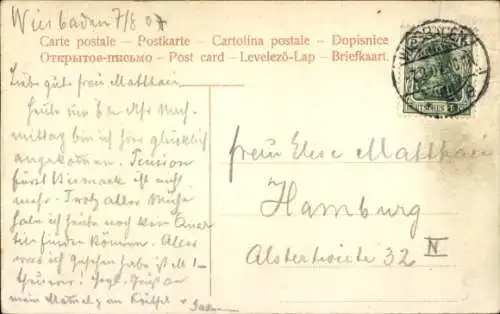 Wiesbaden 7/8 07
Carte postale – Postkarte – Cartolina postale – Dopisnice
Открытое-письмо – Post card – Levelező-Lap – Briefkaart.
Liebe gute frau Matthaei
Heute um 5 Uhr Nach-
mittag bin ich hier glücklich
angekommen. Pension
fürst Bismarck ist nicht
mehr. Trotz aller Mühe
habe ich heute noch kein Quar-
tier finden können. Alles
was ich gesehen habe ist M 1–
frau Elise Matthaei
Hamburg
Alstertwiete 32
N
DEUTSCHES REICH